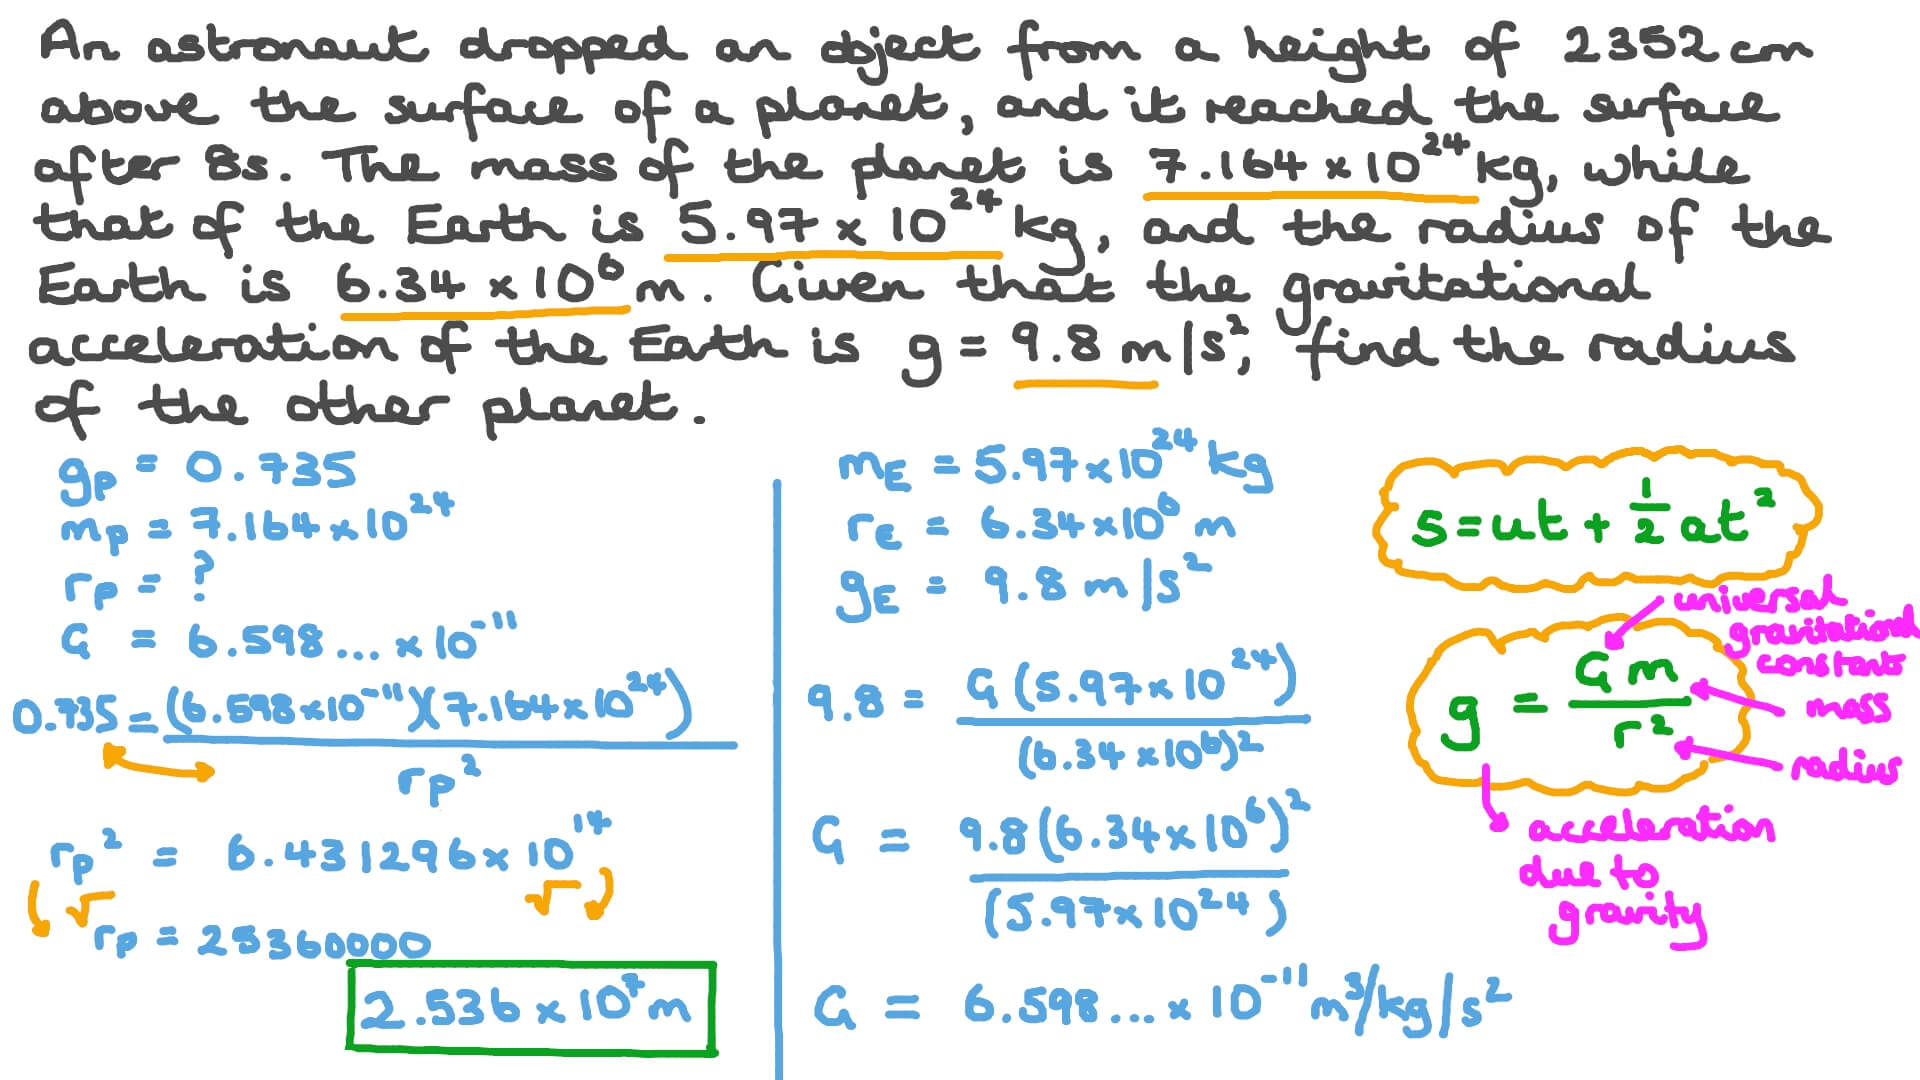 An astronaut dropped an object from a height of 2352 cm
above the surface of a planet, and it reached the surface
after 8s. The mass of the planet is 7.164 × 10²⁴ kg, while
that of the Earth is 5.97 × 10²⁴ kg, and the radius of the
Earth is 6.34 × 10⁶ m. Given that the gravitational
acceleration of the Earth is g = 9.8 m/s², find the radius
of the other planet.
gₚ = 0.735
mₚ = 7.164 × 10²⁴
rₚ = ?
G = 6.598... × 10⁻¹¹
0.735 = (6.598 × 10⁻¹¹)(7.164 × 10²⁴)
rₚ²
rₚ² = 6.431296 × 10¹⁴
√ √
rₚ = 25360000
2.536 × 10⁷ m
m_E = 5.97 × 10²⁴ kg
r_E = 6.34 × 10⁶ m
g_E = 9.8 m/s²
9.8 = G (5.97 × 10²⁴)
(6.34 × 10⁶)²
G = 9.8 (6.34 × 10⁶)²
(5.97 × 10²⁴)
G = 6.598... × 10⁻¹¹ m³/kg/s²
s = ut + ½ at²
universal
gravitational
constant
g = Gm
r²
mass
radius
acceleration
due to
gravity